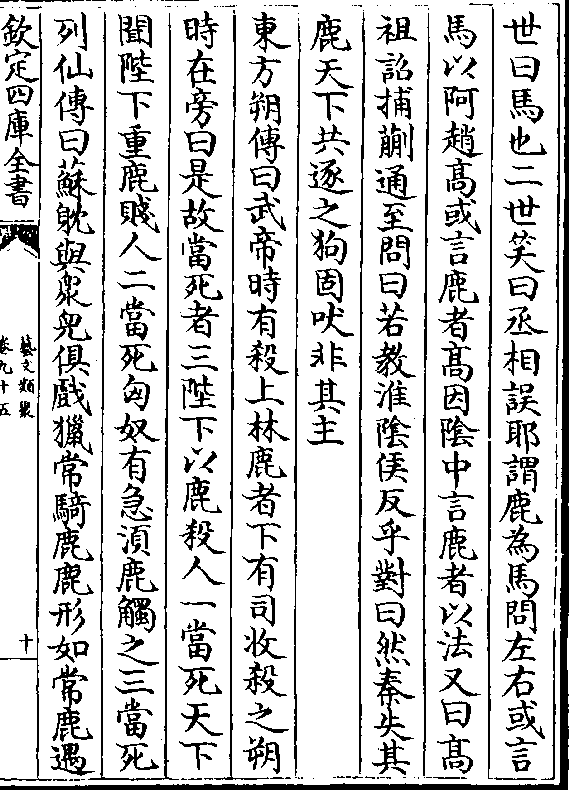 世曰馬也二世笑曰丞相誤耶謂鹿為馬問左右或言
馬以阿趙高或言鹿者高因陰中言鹿者以法又曰髙
祖詔捕蒯通至問曰若教淮陰侯反乎對曰然秦失其
鹿天下共逐之狗固吠非其主
東方朔傳曰武帝時有殺上林鹿者下有司收殺之朔
時在旁曰是故當死者三陛下以鹿殺人一當死天下
聞陛下重鹿賤人二當死匈奴有急湏鹿觸之三當死
列仙傳曰蘇躭與衆兒俱戲獵常騎鹿鹿形如常鹿遇
欽定四庫全書
藝文類聚
卷九十五
十